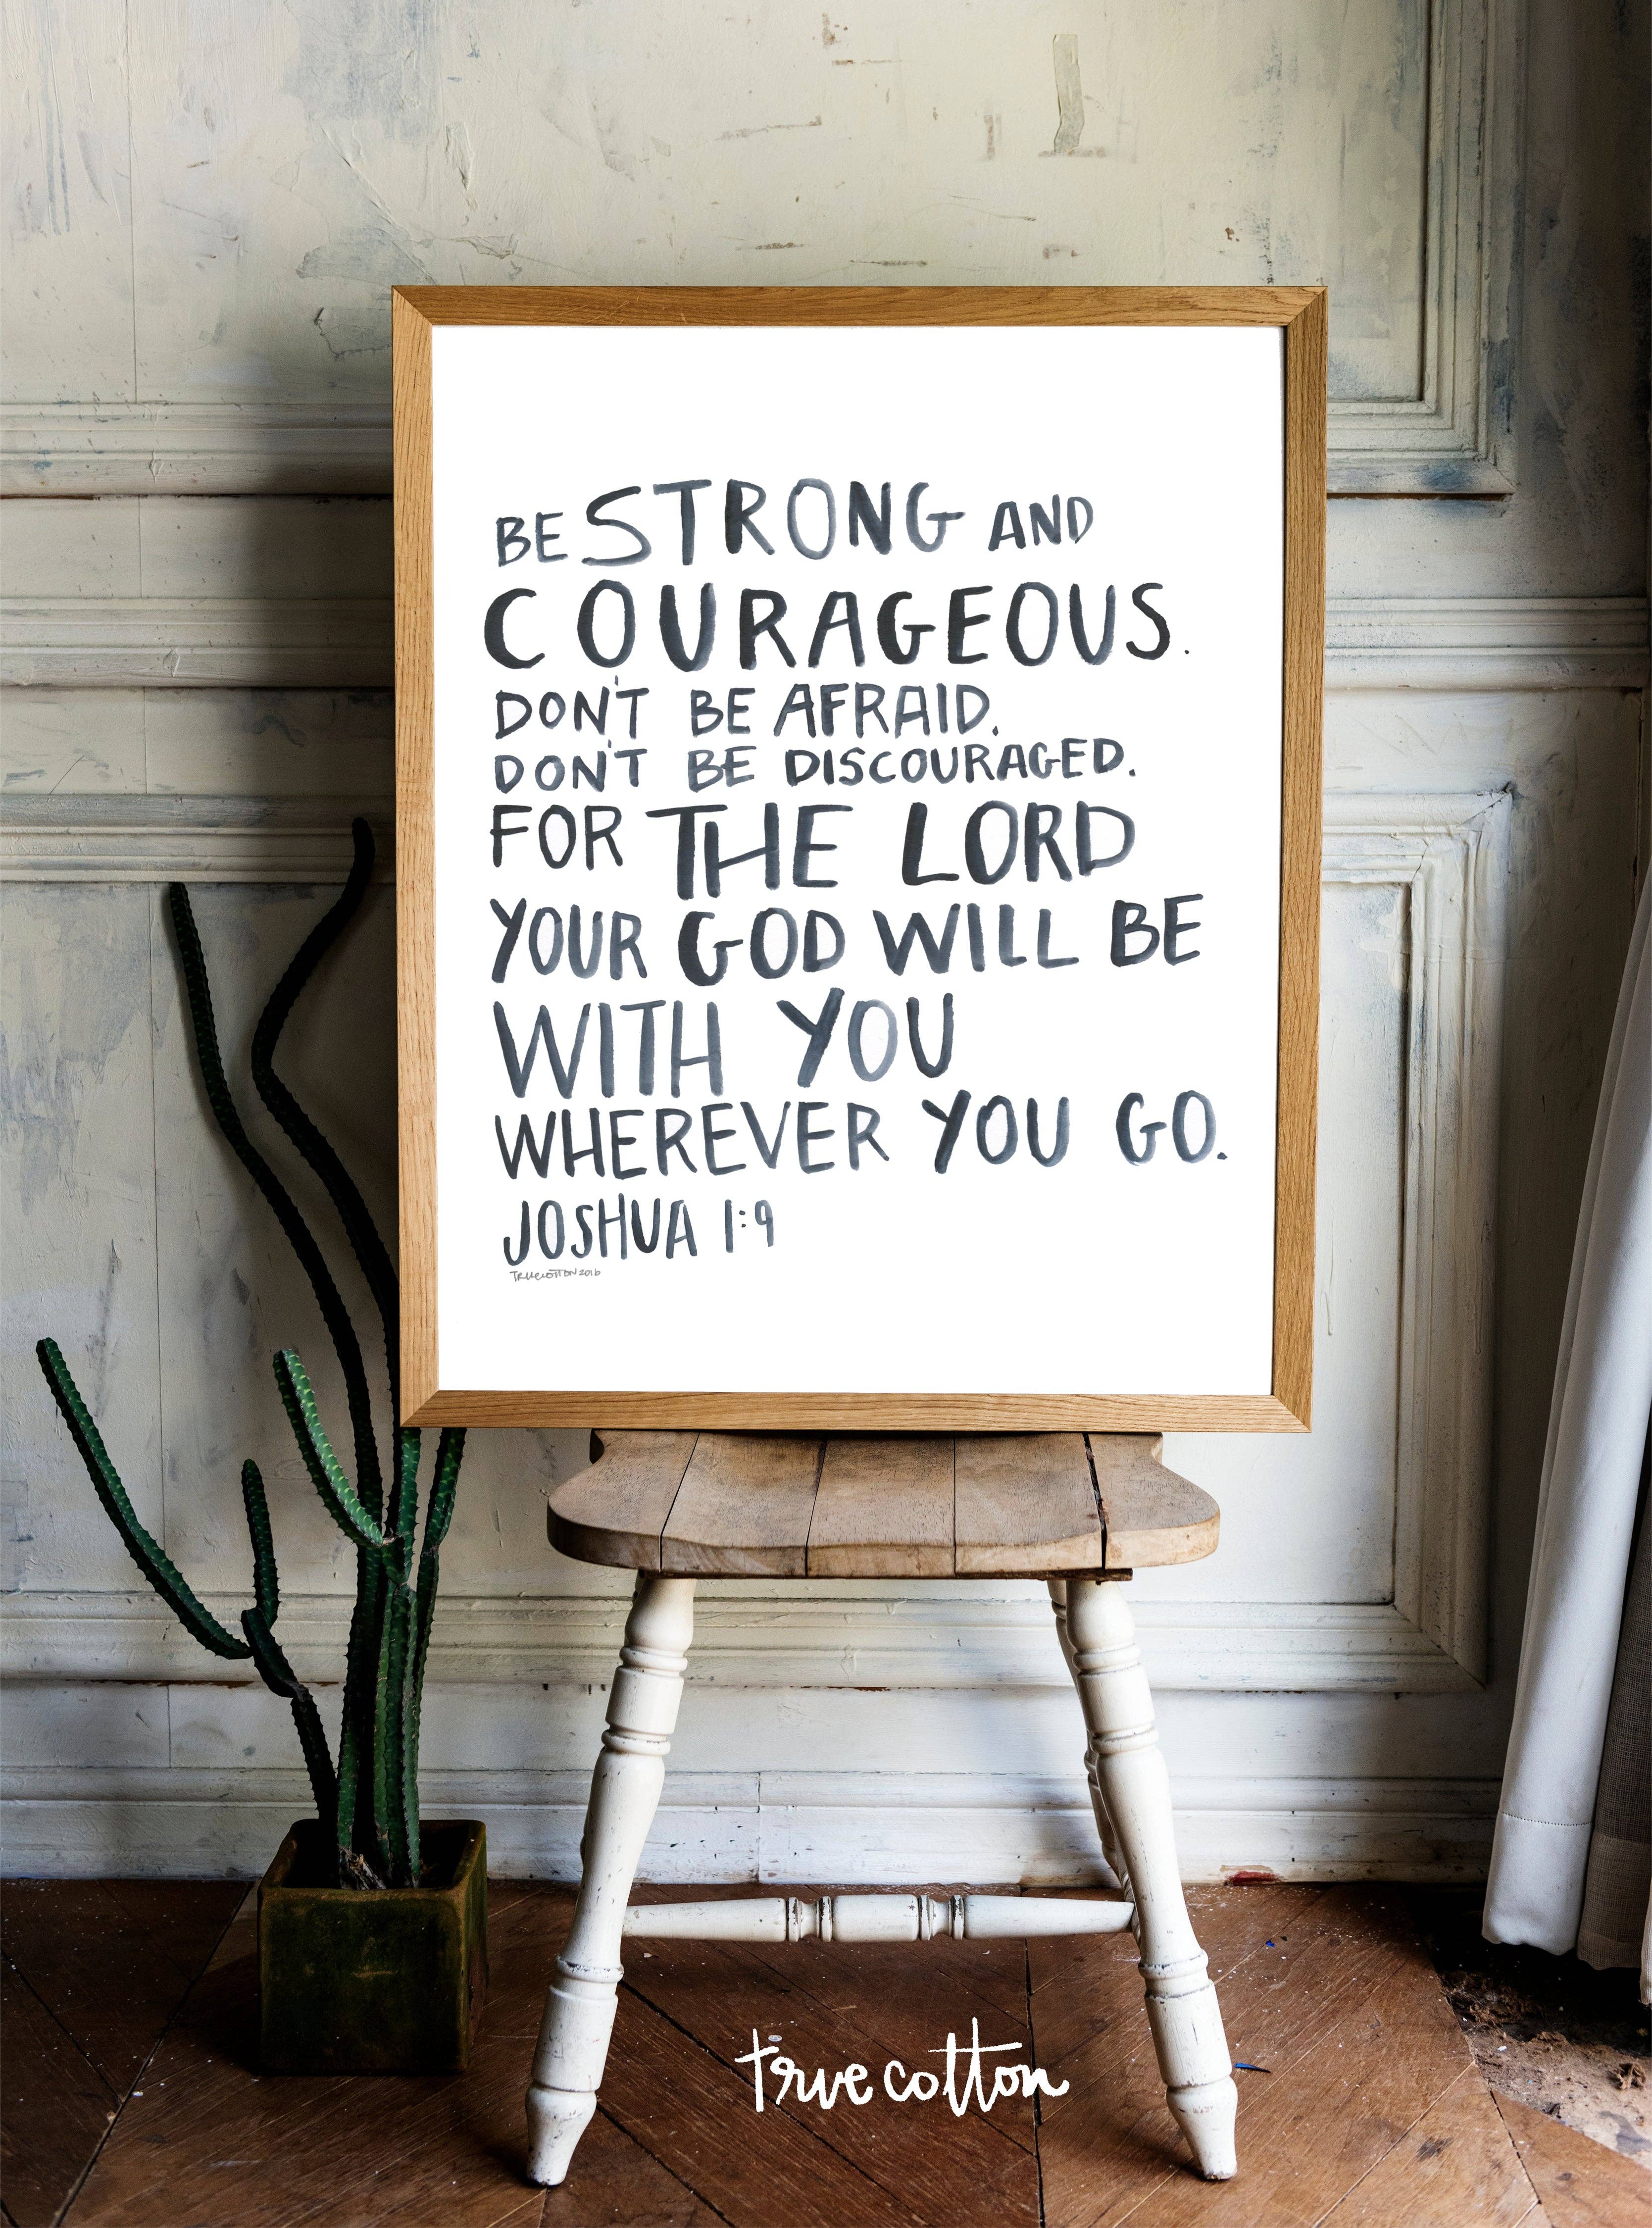 BE STRONG AND
COURAGEOUS.
DON'T BE AFRAID.
DON'T BE DISCOURAGED.
FOR THE LORD
YOUR GOD WILL BE
WITH YOU
WHEREVER YOU GO.
JOSHUA 1:9
TRUECOTTON 2016
true cotton